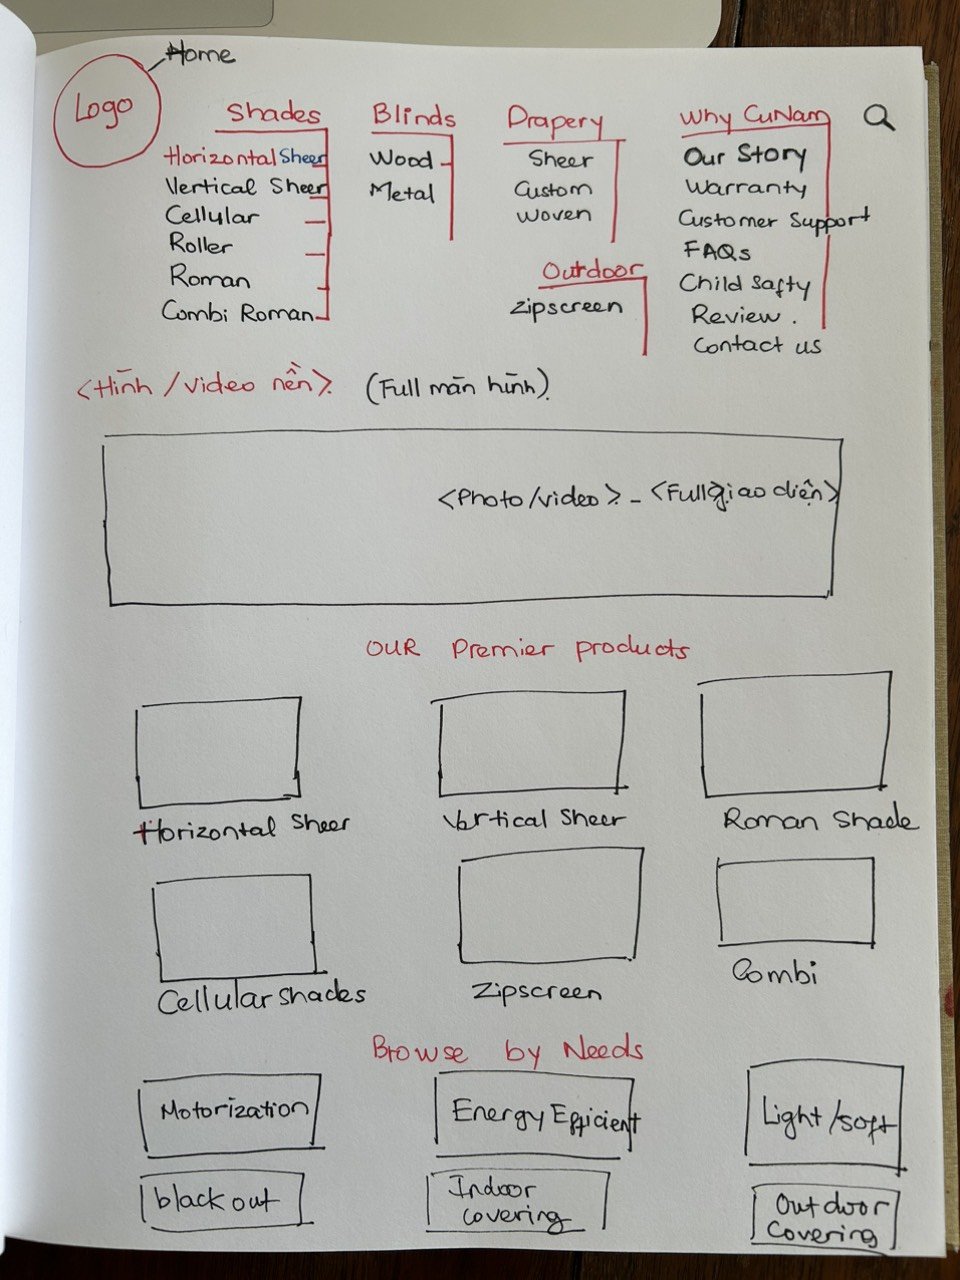 Home
Logo
Shades
Horizontal Sheer
Vertical Sheer
Cellular
Roller
Roman
Combi Roman
Blinds
Wood
Metal
Drapery
Sheer
Custom
Woven
Outdoor
Zipscreen
Why CuNam
Our Story
Warranty
Customer Support
FAQs
Child Safty
Review.
Contact us
<Hình/video nền> (Full màn hình)
<Photo/video> - <Full giao diện>
OUR Premier products
Horizontal Sheer
Vertical Sheer
Roman Shade
Cellular shades
Zipscreen
Combi
Browse by Needs
Motorization
Energy Efficient
Light/soft
black out
Indoor
covering
Outdoor
Covering